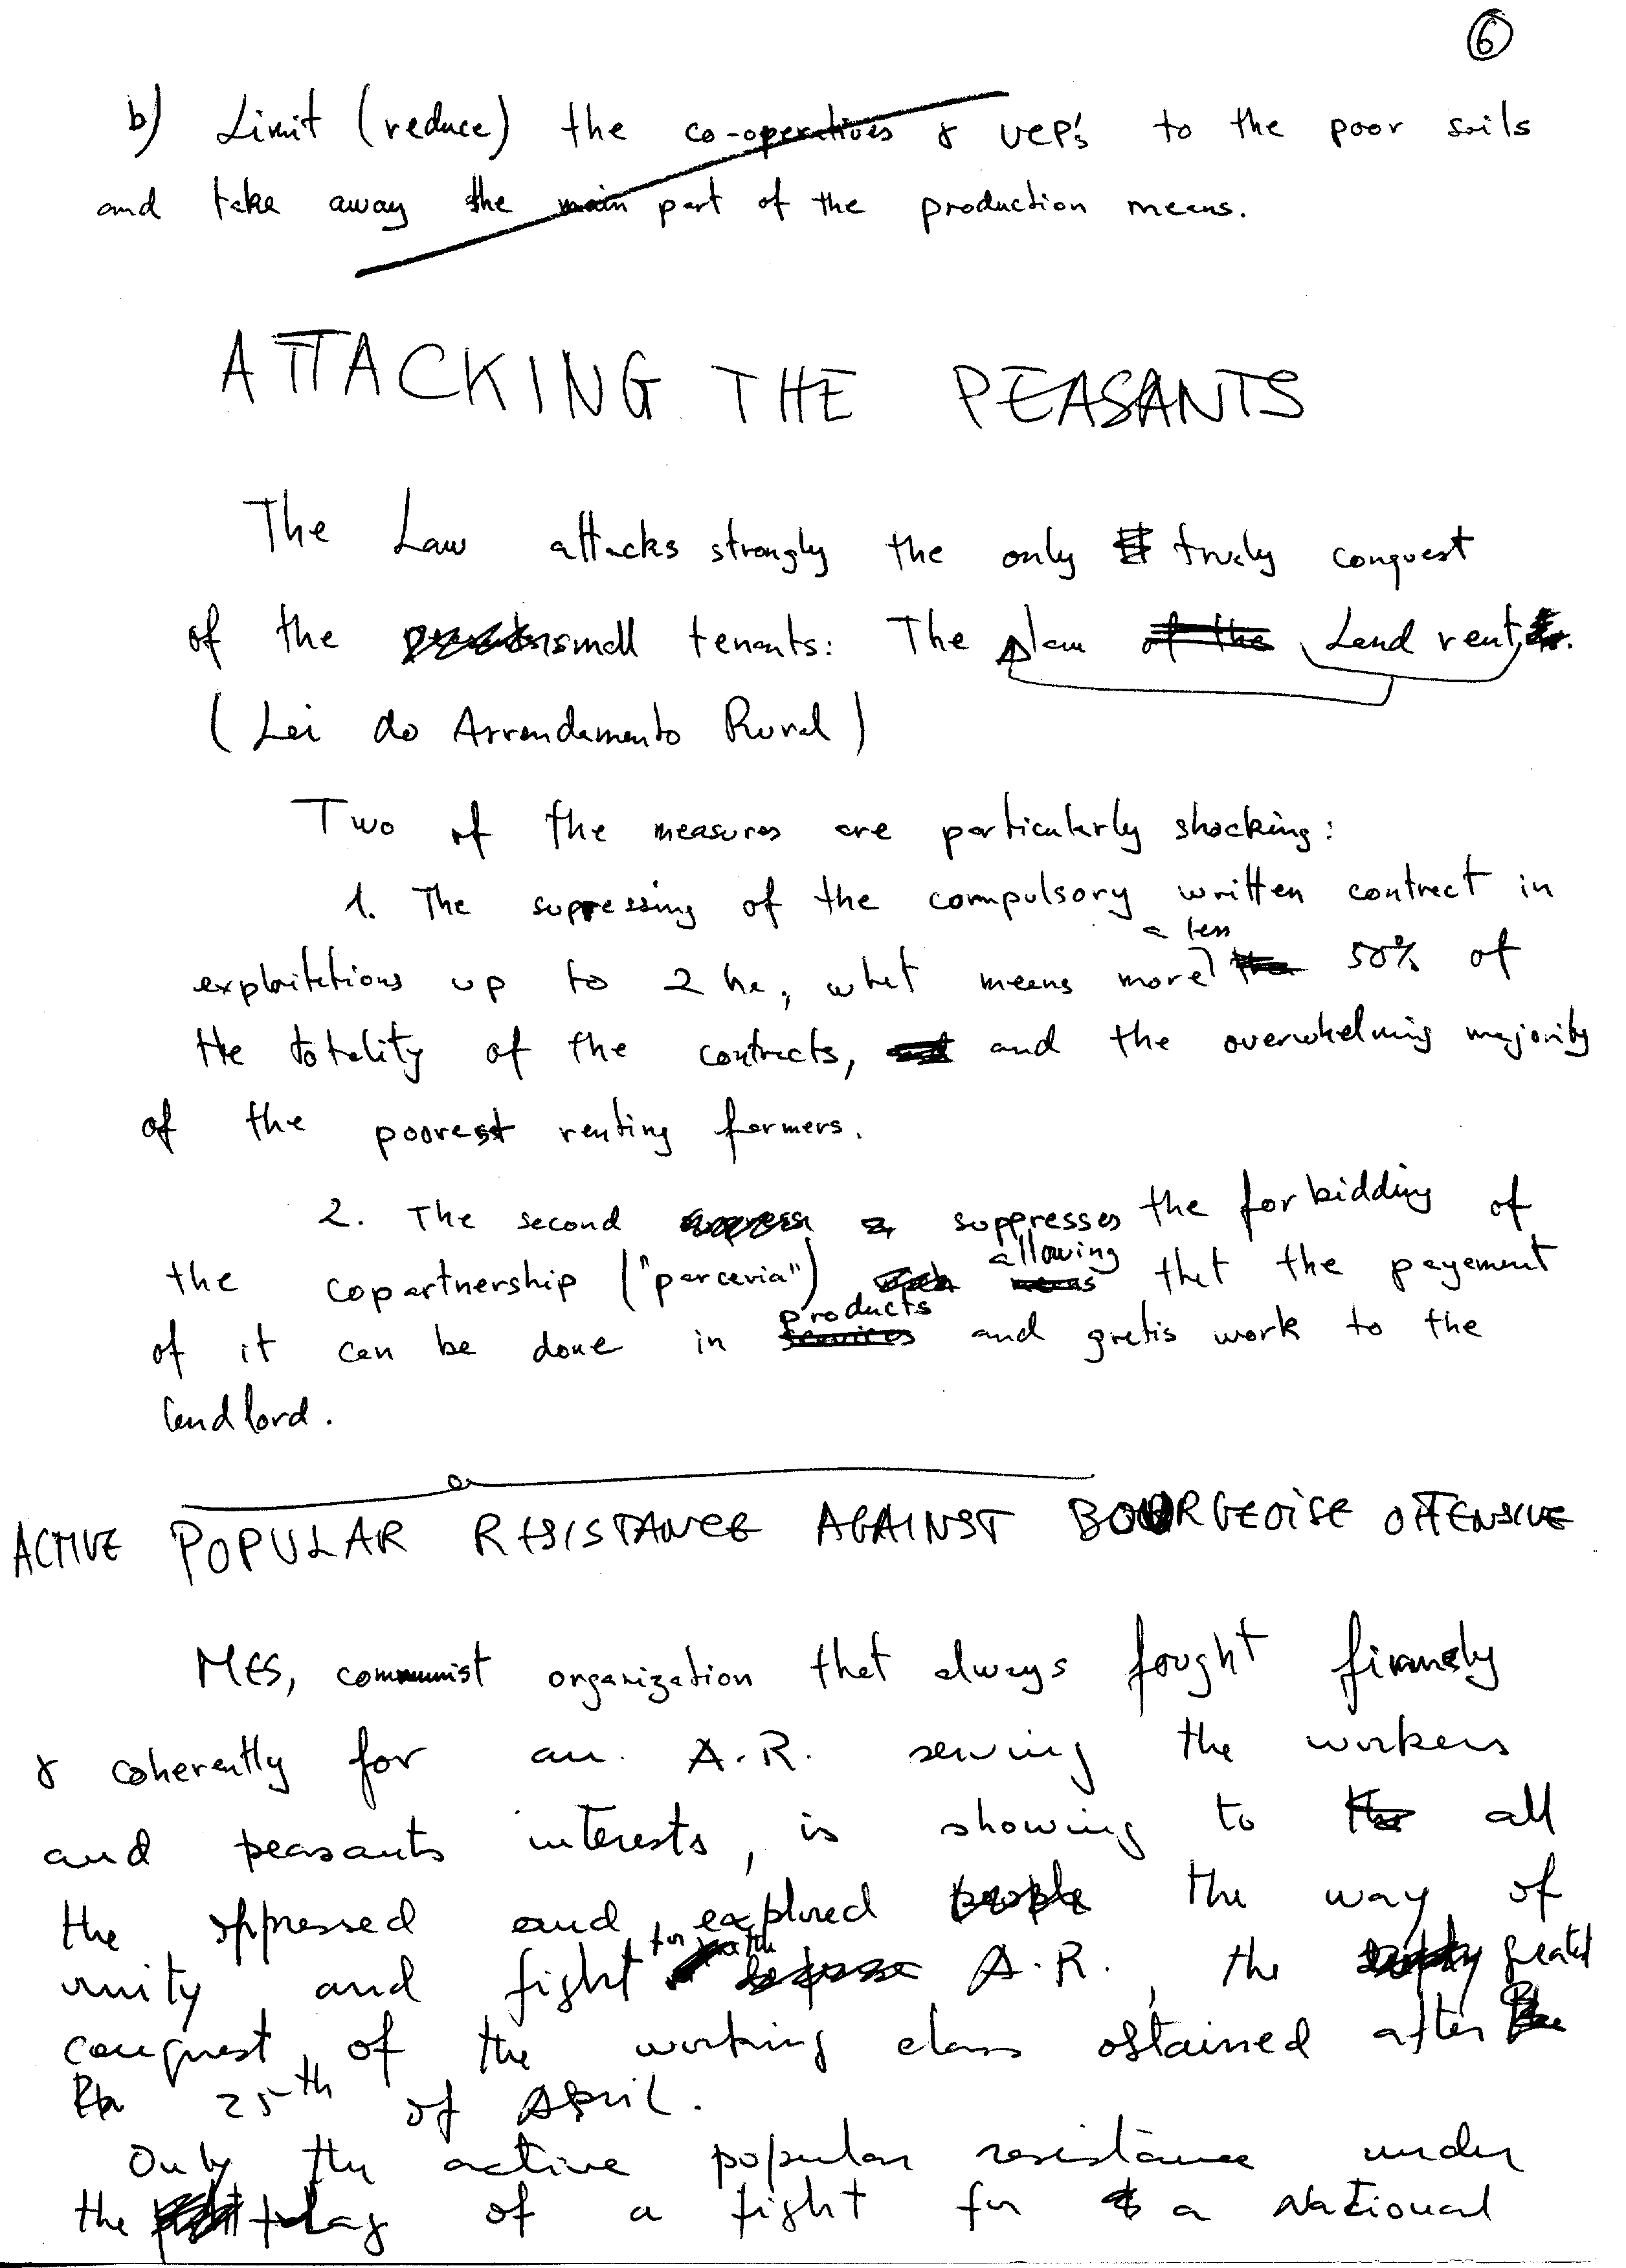 6
b) Limit (reduce) the co-operatives & UCP's to the poor soils
and take away the main part of the production means.
ATTACKING THE PEASANTS
The Law attacks strongly the only truly conquest
of the small tenants: The law Land rent.
(Lei do Arrendamento Rural)
Two of the measures are particularly shocking:
1. The supressing of the compulsory written contract in
a less
exploitations up to 2 ha, what means more 50% of
the totality of the contracts, and the overwhelming majority
of the poorest renting farmers.
2. The second suppresses the forbidding of
allowing
the copartnership ("parceria") that the payement
products
of it can be done in services and gratis work to the
landlord.
ACTIVE POPULAR RESISTANCE AGAINST BOURGEOISE OFFENSIVE
MES, communist organization that always fought firmely
& coherently for an A.R. serving the workers
and peasants interests, is showing to the all
the oppressed and explored people the way of
unity and fight for with A.R., the greatest
conquest of the working class obtained after
the 25th of April.
Only the active popular resistance under
the flag of a fight for a National